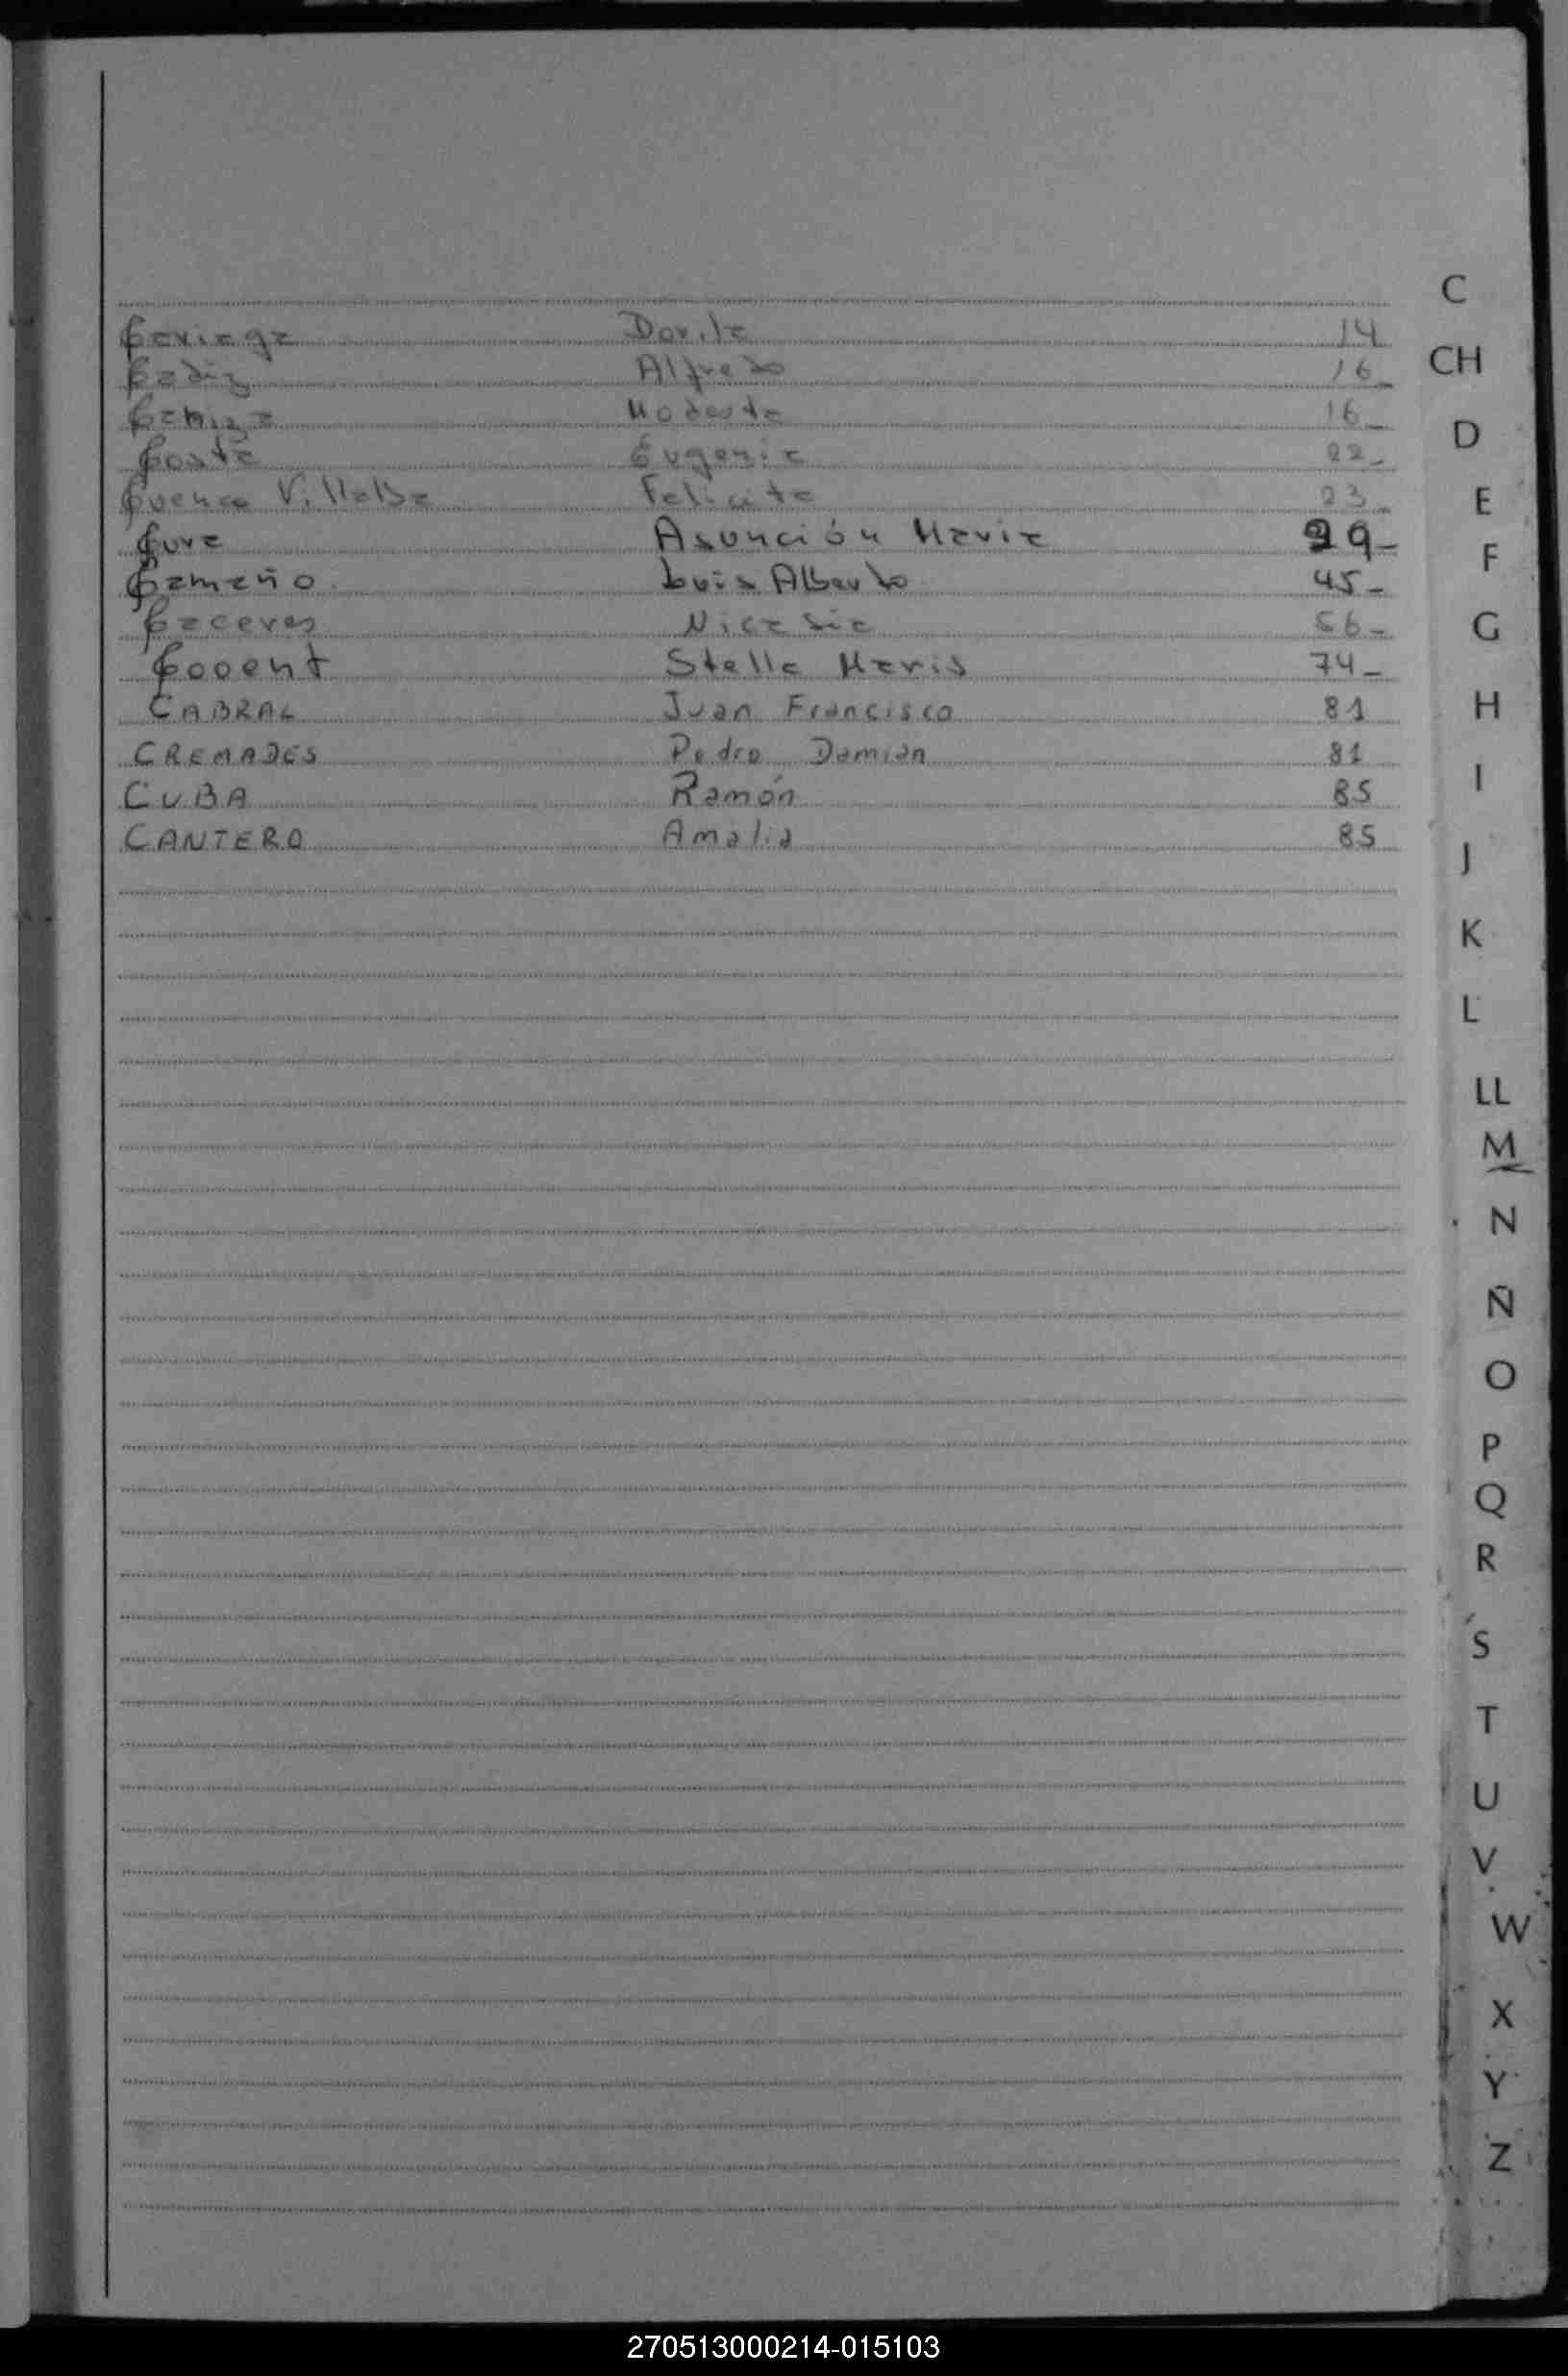 Cariaga Dorila 14
Cadiz Alfredo 16_
Modesta 16_
Costa Eugenia 22_
Cuenca Villalba Felicita 23_
Cura Asunción Maria 29_
Camaño Luis Alberto 45_
Caceres Nicasia 56_
Cooent Stella Maris 74_
CABRAL Juan Francisco 81
CREMADES Pedro Damian 81
CUBA Ramón 85
CANTERO Amalia 85
C
CH
D
E
F
G
H
I
J
K
L
LL
M
N
Ñ
O
P
Q
R
S
T
U
V
W
X
Y
Z
270513000214-015103